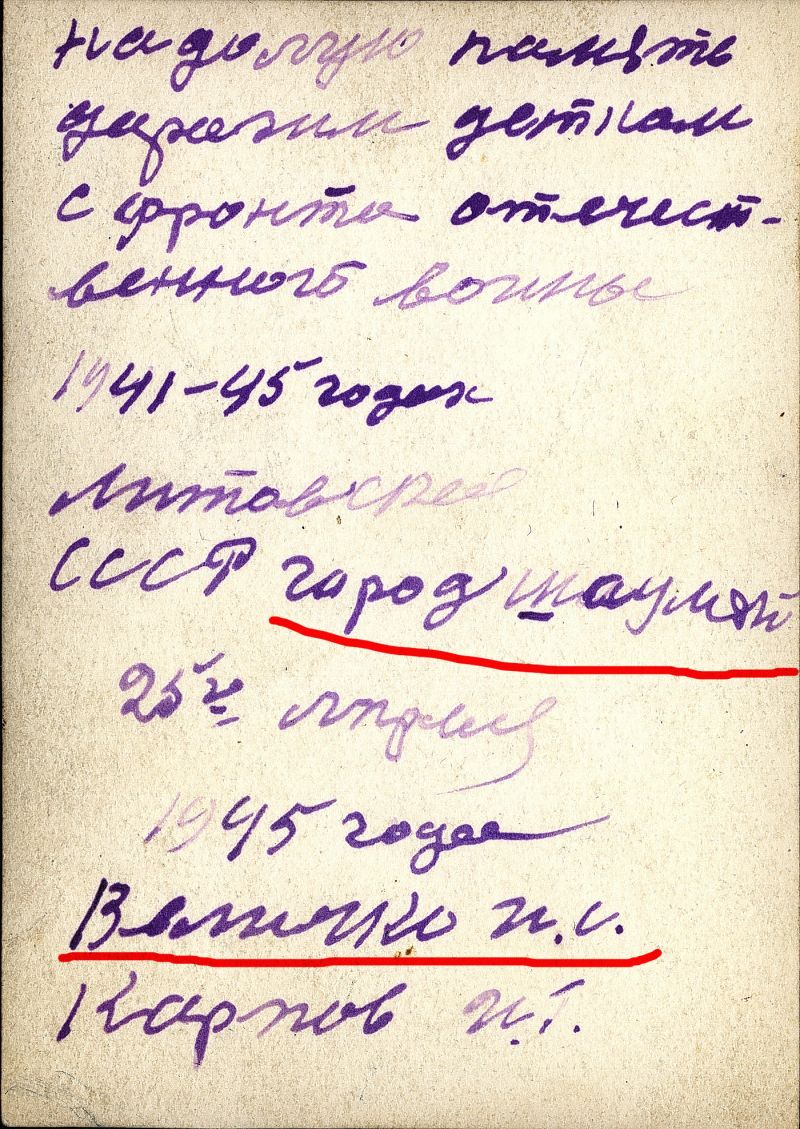 на долгую память
дарагим деткам
с фронта отечест-
венной войны
1941-45 годах
Литовская
СССР город шауляй
25го апреля
1945 года
Величко И.С.
Карпов И.Г.